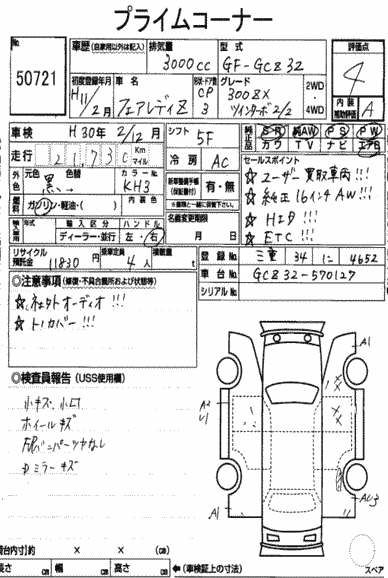 プライムコーナー
No.
50721
車歴 (自家用以外は記入)
排気量
3000cc
型式
GF-GCZ32
評価点
4
初度登録年月
H11年2月
車名
フェアレディZ
ドア
CP
3
グレード
300ZX
ツインターボ 2/2
2WD
4WD
内装
補助評価
A
車検
H30年 2/12月
シフト
5F
純正品
SR
純AW
PS
PW
カワ
TV
ナビ
エアB
走行
Km
マイル
冷房
AC
セールスポイント
☆ユーザー買取車両!!!
☆純正16インチAW!!!
☆HID!!!
☆ETC!!!
外色
元色
黒
色替
カラーNo.
KH3
内装色
新車整備手帳
(保証書付)
有・無
燃料
ガソリン・軽油・( )
名義変更期限
月 日
輸入車
年式
輸入区分
ディーラー・並行
ハンドル
左・右
登録No.
三重 34 に 4652
リサイクル預託金
11830円
乗車定員
4人
積載量
t
車台No.
GCZ32-570127
シリアルNo.
◎注意事項 (修復・不具合箇所および状態等)
☆社外オーディオ!!!
☆トノカバー!!!
◎検査員報告 (USS使用欄)
小キズ、小凹
ホイールキズ
Dミラーキズ
A1
A2
U1
A1
A1
荷台内寸)約 × × (cm)
長さ cm 幅 cm 高さ cm
←(車検証上の寸法)
スペア